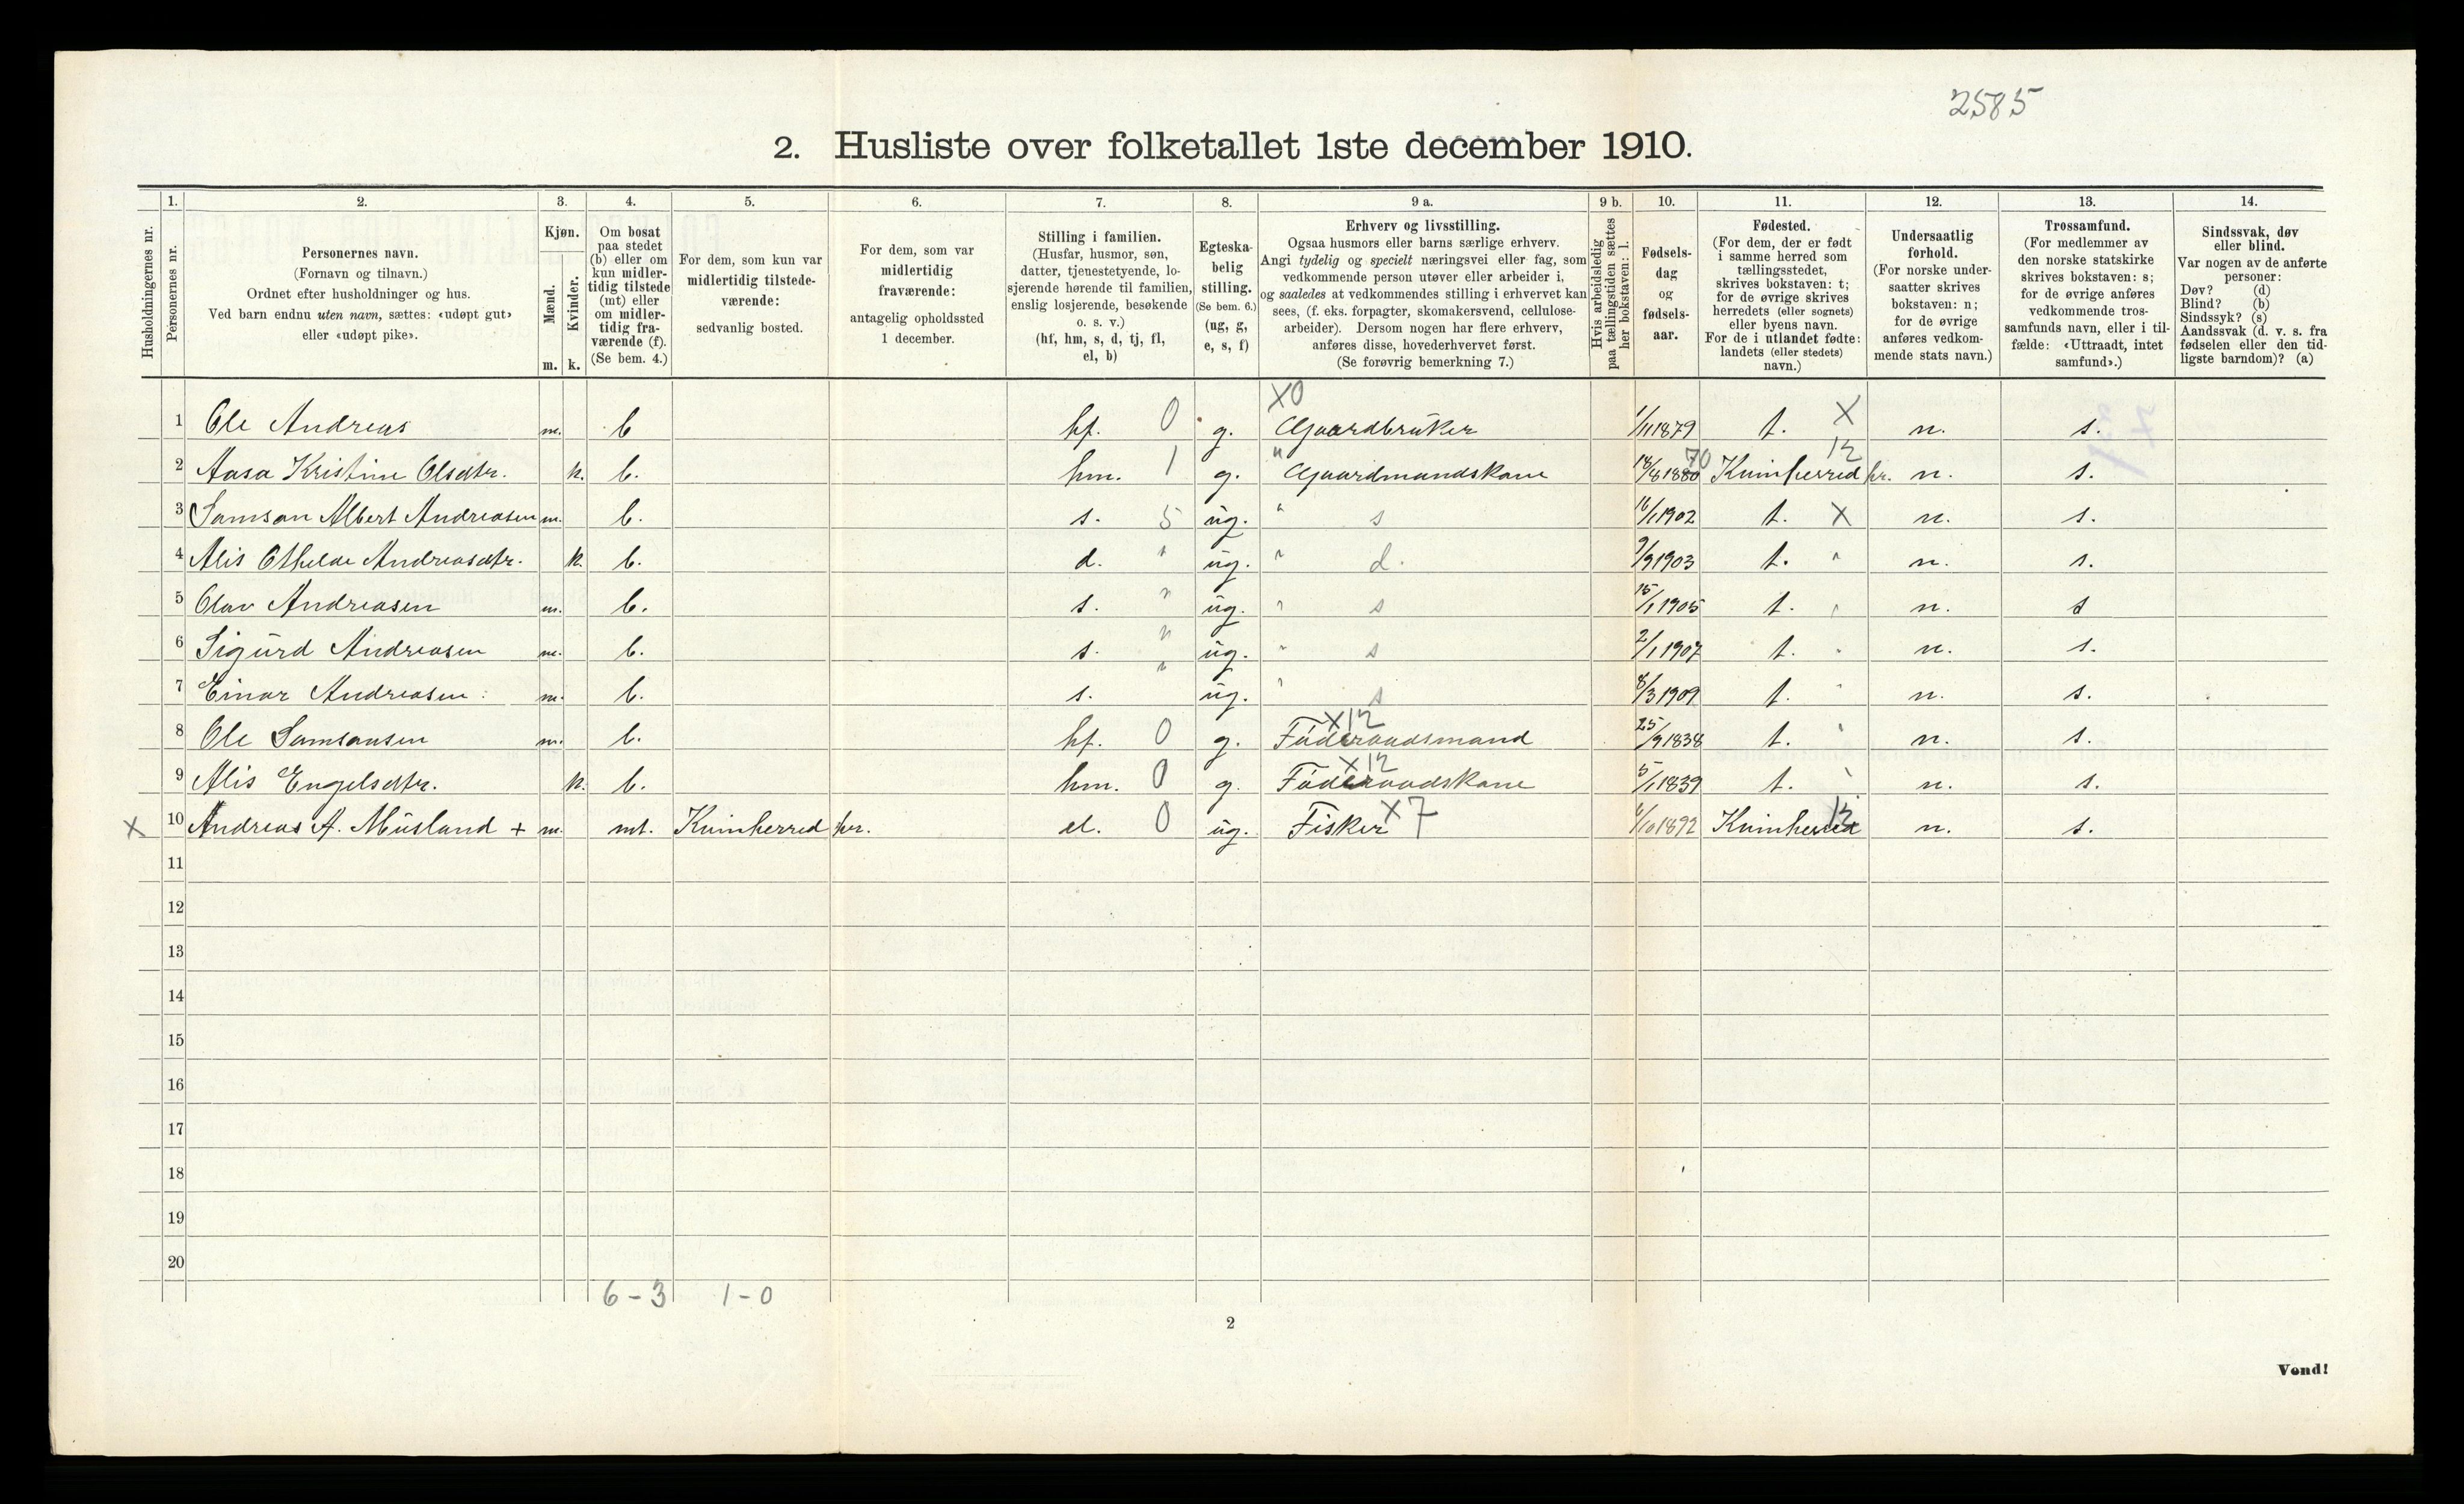 2585
2. Husliste over folketallet 1ste december 1910.
Husholdningernes nr.
1. Personernes nr.
2. Personernes navn.
(Fornavn og tilnavn.)
Ordnet efter husholdninger og hus.
Ved barn endnu uten navn, sættes: «udøpt gut»
eller «udøpt pike».
3. Kjøn.
Mænd. m.
Kvinder. k.
4. Om bosat
paa stedet
(b) eller om
kun midler-
tidig tilstede
(mt) eller
om midler-
tidig fra-
værende (f).
(Se bem. 4.)
5. For dem, som kun var
midlertidig tilstede-
værende:
sedvanlig bosted.
6. For dem, som var
midlertidig
fraværende:
antagelig opholdssted
1 december.
7. Stilling i familien.
(Husfar, husmor, søn,
datter, tjenestetyende, lo-
sjerende hørende til familien,
enslig losjerende, besøkende
o. s. v.)
(hf, hm, s, d, tj, fl,
el, b)
8. Egteska-
belig
stilling.
(Se bem. 6.)
(ug, g,
e, s, f)
9 a. Erhverv og livsstilling.
Ogsaa husmors eller barns særlige erhverv.
Angi tydelig og specielt næringsvei eller fag, som
vedkommende person utøver eller arbeider i,
og saaledes at vedkommendes stilling i erhvervet kan
sees, (f. eks. forpagter, skomakersvend, cellulose-
arbeider). Dersom nogen har flere erhverv,
anføres disse, hovederhvervet først.
(Se forøvrig bemerkning 7.)
9 b. Hvis arbeidsledig
paa tællingstiden sættes
her bokstaven: l.
10. Fødsels-
dag
og
fødsels-
aar.
11. Fødested.
(For dem, der er født
i samme herred som
tællingsstedet,
skrives bokstaven: t;
for de øvrige skrives
herredets (eller sognets)
eller byens navn.
For de i utlandet fødte:
landets (eller stedets)
navn.)
12. Undersaatlig
forhold.
(For norske under-
saatter skrives
bokstaven: n;
for de øvrige
anføres vedkom-
mende stats navn.)
13. Trossamfund.
(For medlemmer av
den norske statskirke
skrives bokstaven: s;
for de øvrige anføres
vedkommende tros-
samfunds navn, eller i til-
fælde: «Uttraadt, intet
samfund».)
14. Sindssvak, døv
eller blind.
Var nogen av de anførte
personer:
Døv? (d)
Blind? (b)
Sindssyk? (s)
Aandssvak (d. v. s. fra
fødselen eller den tid-
ligste barndom)? (a)
X0
1 Ole Andreas m. b hf. 0 g. Gaardbruker 1/11 1879 t. X n. s.
2 Aasa Kristine Olsdtr. k. b. hm. 1 g. " Gaardmandskone 18/8 1880 70 Kvinherred hr. 12 n. s.
3 Samson Albert Andreasen m. b. s. 5 ug. " s 16/1 1902 t. X n. s.
4 Alis Othelde Andreasdtr. k. b. d. " ug. " d. 9/9 1903 t. " n. s.
5 Olav Andreasen m. b. s. " ug. " s 15/1 1905 t. " n. s
6 Sigurd Andreasen m. b. s. " ug. " s 2/1 1907 t. " n. s.
7 Einar Andreasen m. b. s. " ug. " s 8/3 1909 t. " n. s.
8 Ole Samsonsen m. b. hf. 0 g. Føderaadsmand X12 25/9 1838 t. " n. s.
9 Alis Engelsdtr. k. b. hm. 0 g. Føderaadskone X12 5/1 1839 t. " n. s.
X 10 Andreas A. Müsland + m. mt. Kvinherred hr. el. 0 ug. Fisker X7 6/10 1892 Kvinherred 12 n. s.
11
12
13
14
15
16
17
18
19
20
6 - 3 1 - 0
2
Vend!